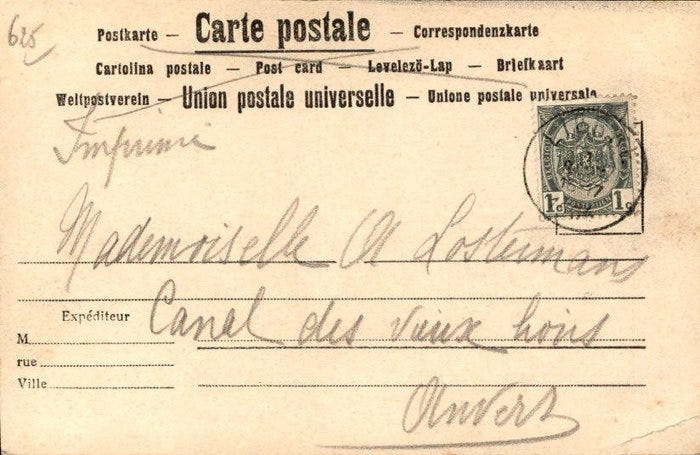 625
Postkarte — Carte postale — Correspondenzkarte
Cartolina postale — Post card — Levelező-Lap — Briefkaart
Weltpostverein — Union postale universelle — Unione postale universale
Imprimé
1c 1c
Mademoiselle A Lostermans
Expéditeur
Canal des vieux lions
M
rue
Ville
Anvers